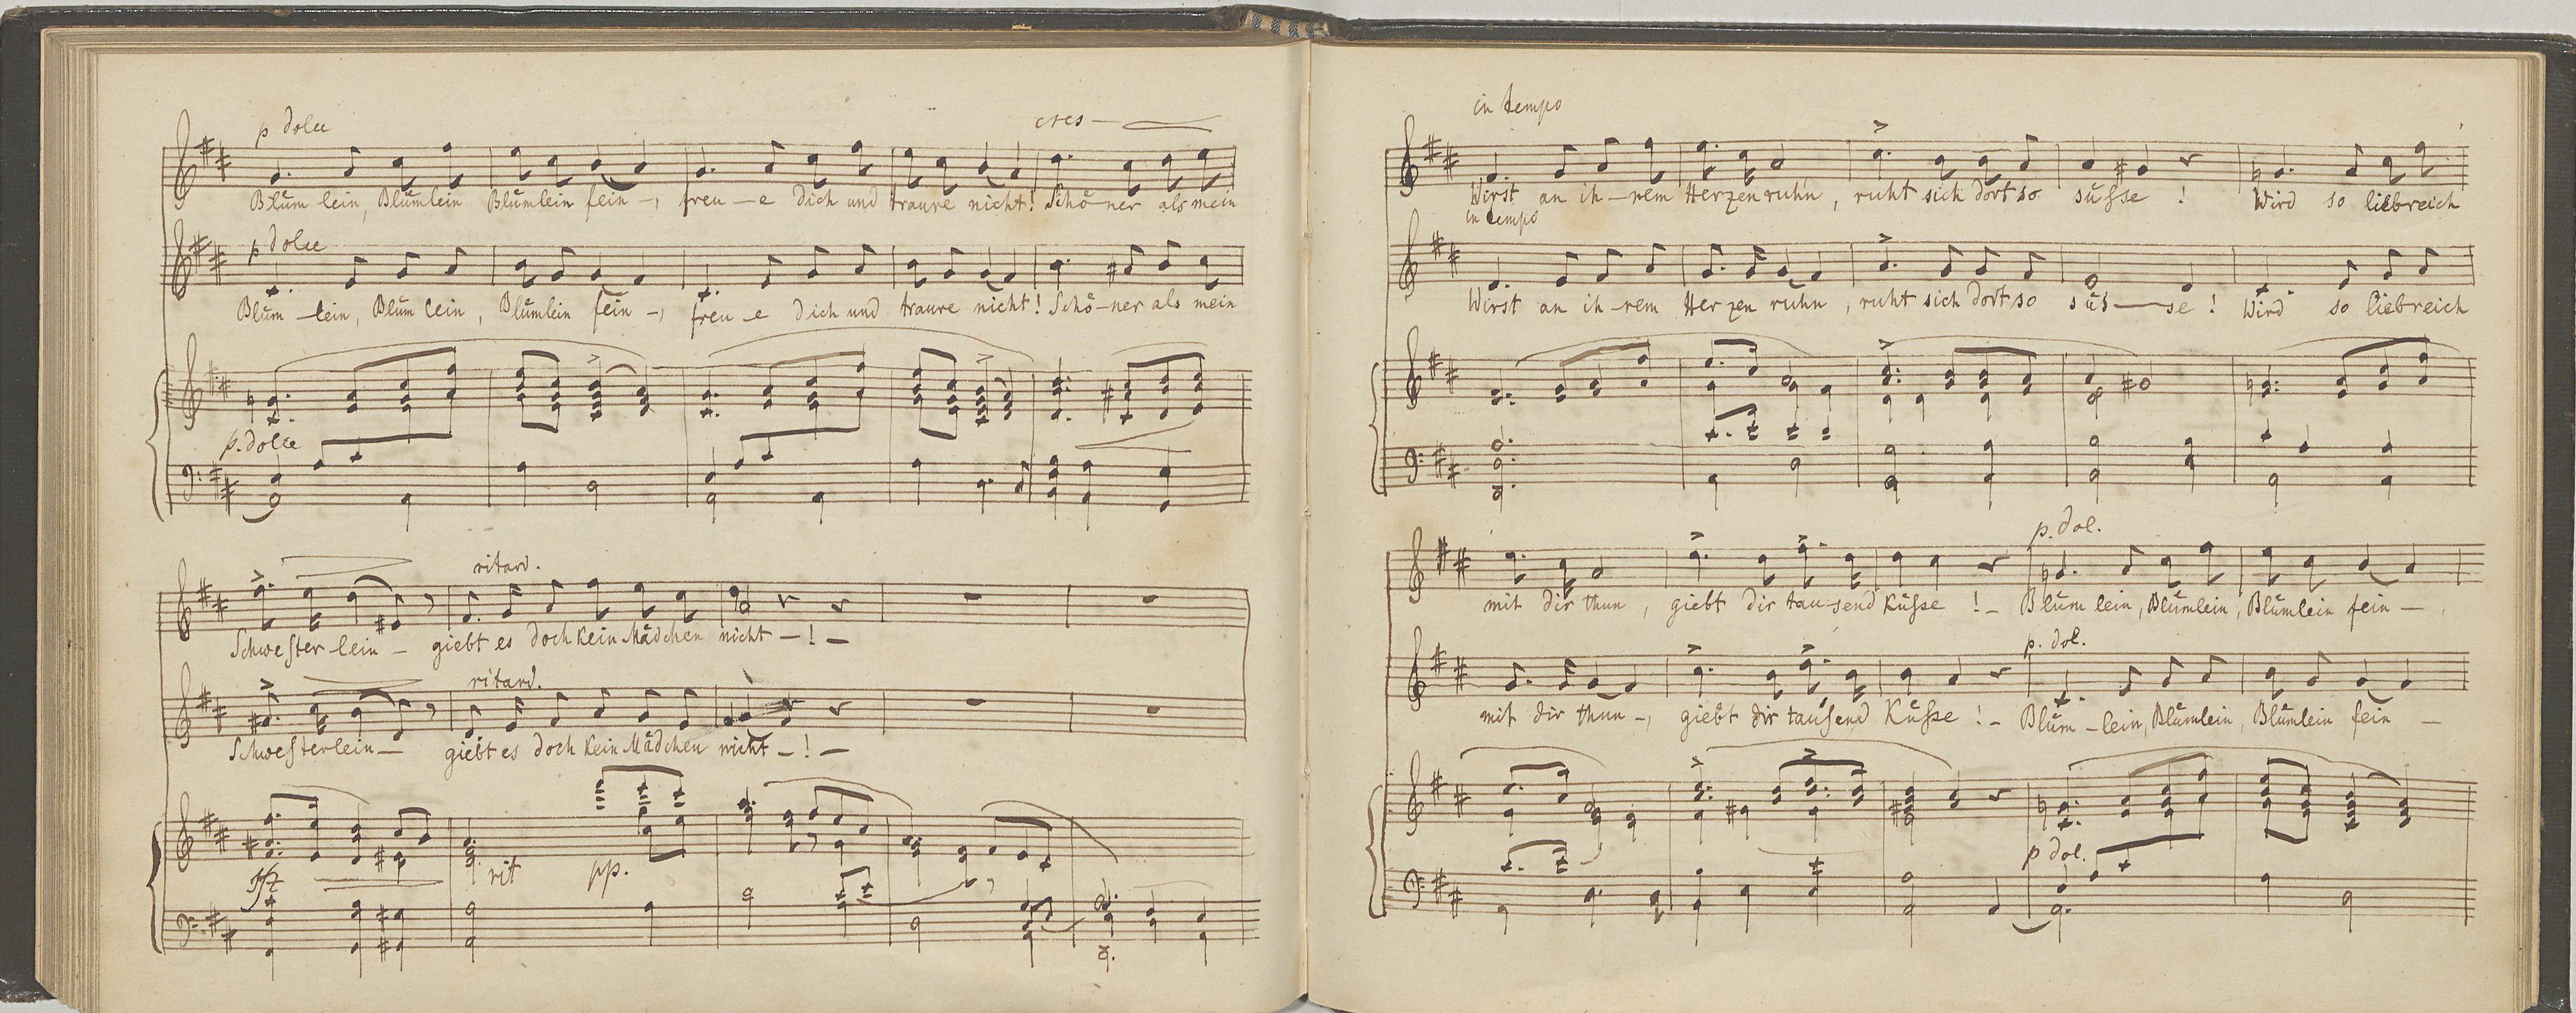 p dolce
cres-
Blümlein, Blümlein Blümlein fein -, freu-e dich und traure nicht! Schö-ner als mein
p dolce
Blüm-lein, Blümlein, Blümlein fein -, freu-e dich und traure nicht! Schö-ner als mein
p. dolce
ritard.
Schwesterlein - giebt es doch kein Mädchen nicht -! -
ritard.
Schwesterlein - giebt es doch kein Mädchen nicht -! -
fz rit pp.
in tempo
Wirst an ih-rem Herzen ruhn, ruht sich dort so süsse! Wird so liebreich
in tempo
Wirst an ih-rem Herzen ruhn, ruht sich dort so süs-se! Wird so liebreich
p. dol.
mit dir thun, giebt dir tausend Küsse! - Blümlein, Blümlein, Blümlein fein -,
p. dol.
mit dir thun -, giebt dir tausend Küsse! - Blüm-lein, Blümlein, Blümlein fein -
p dol.